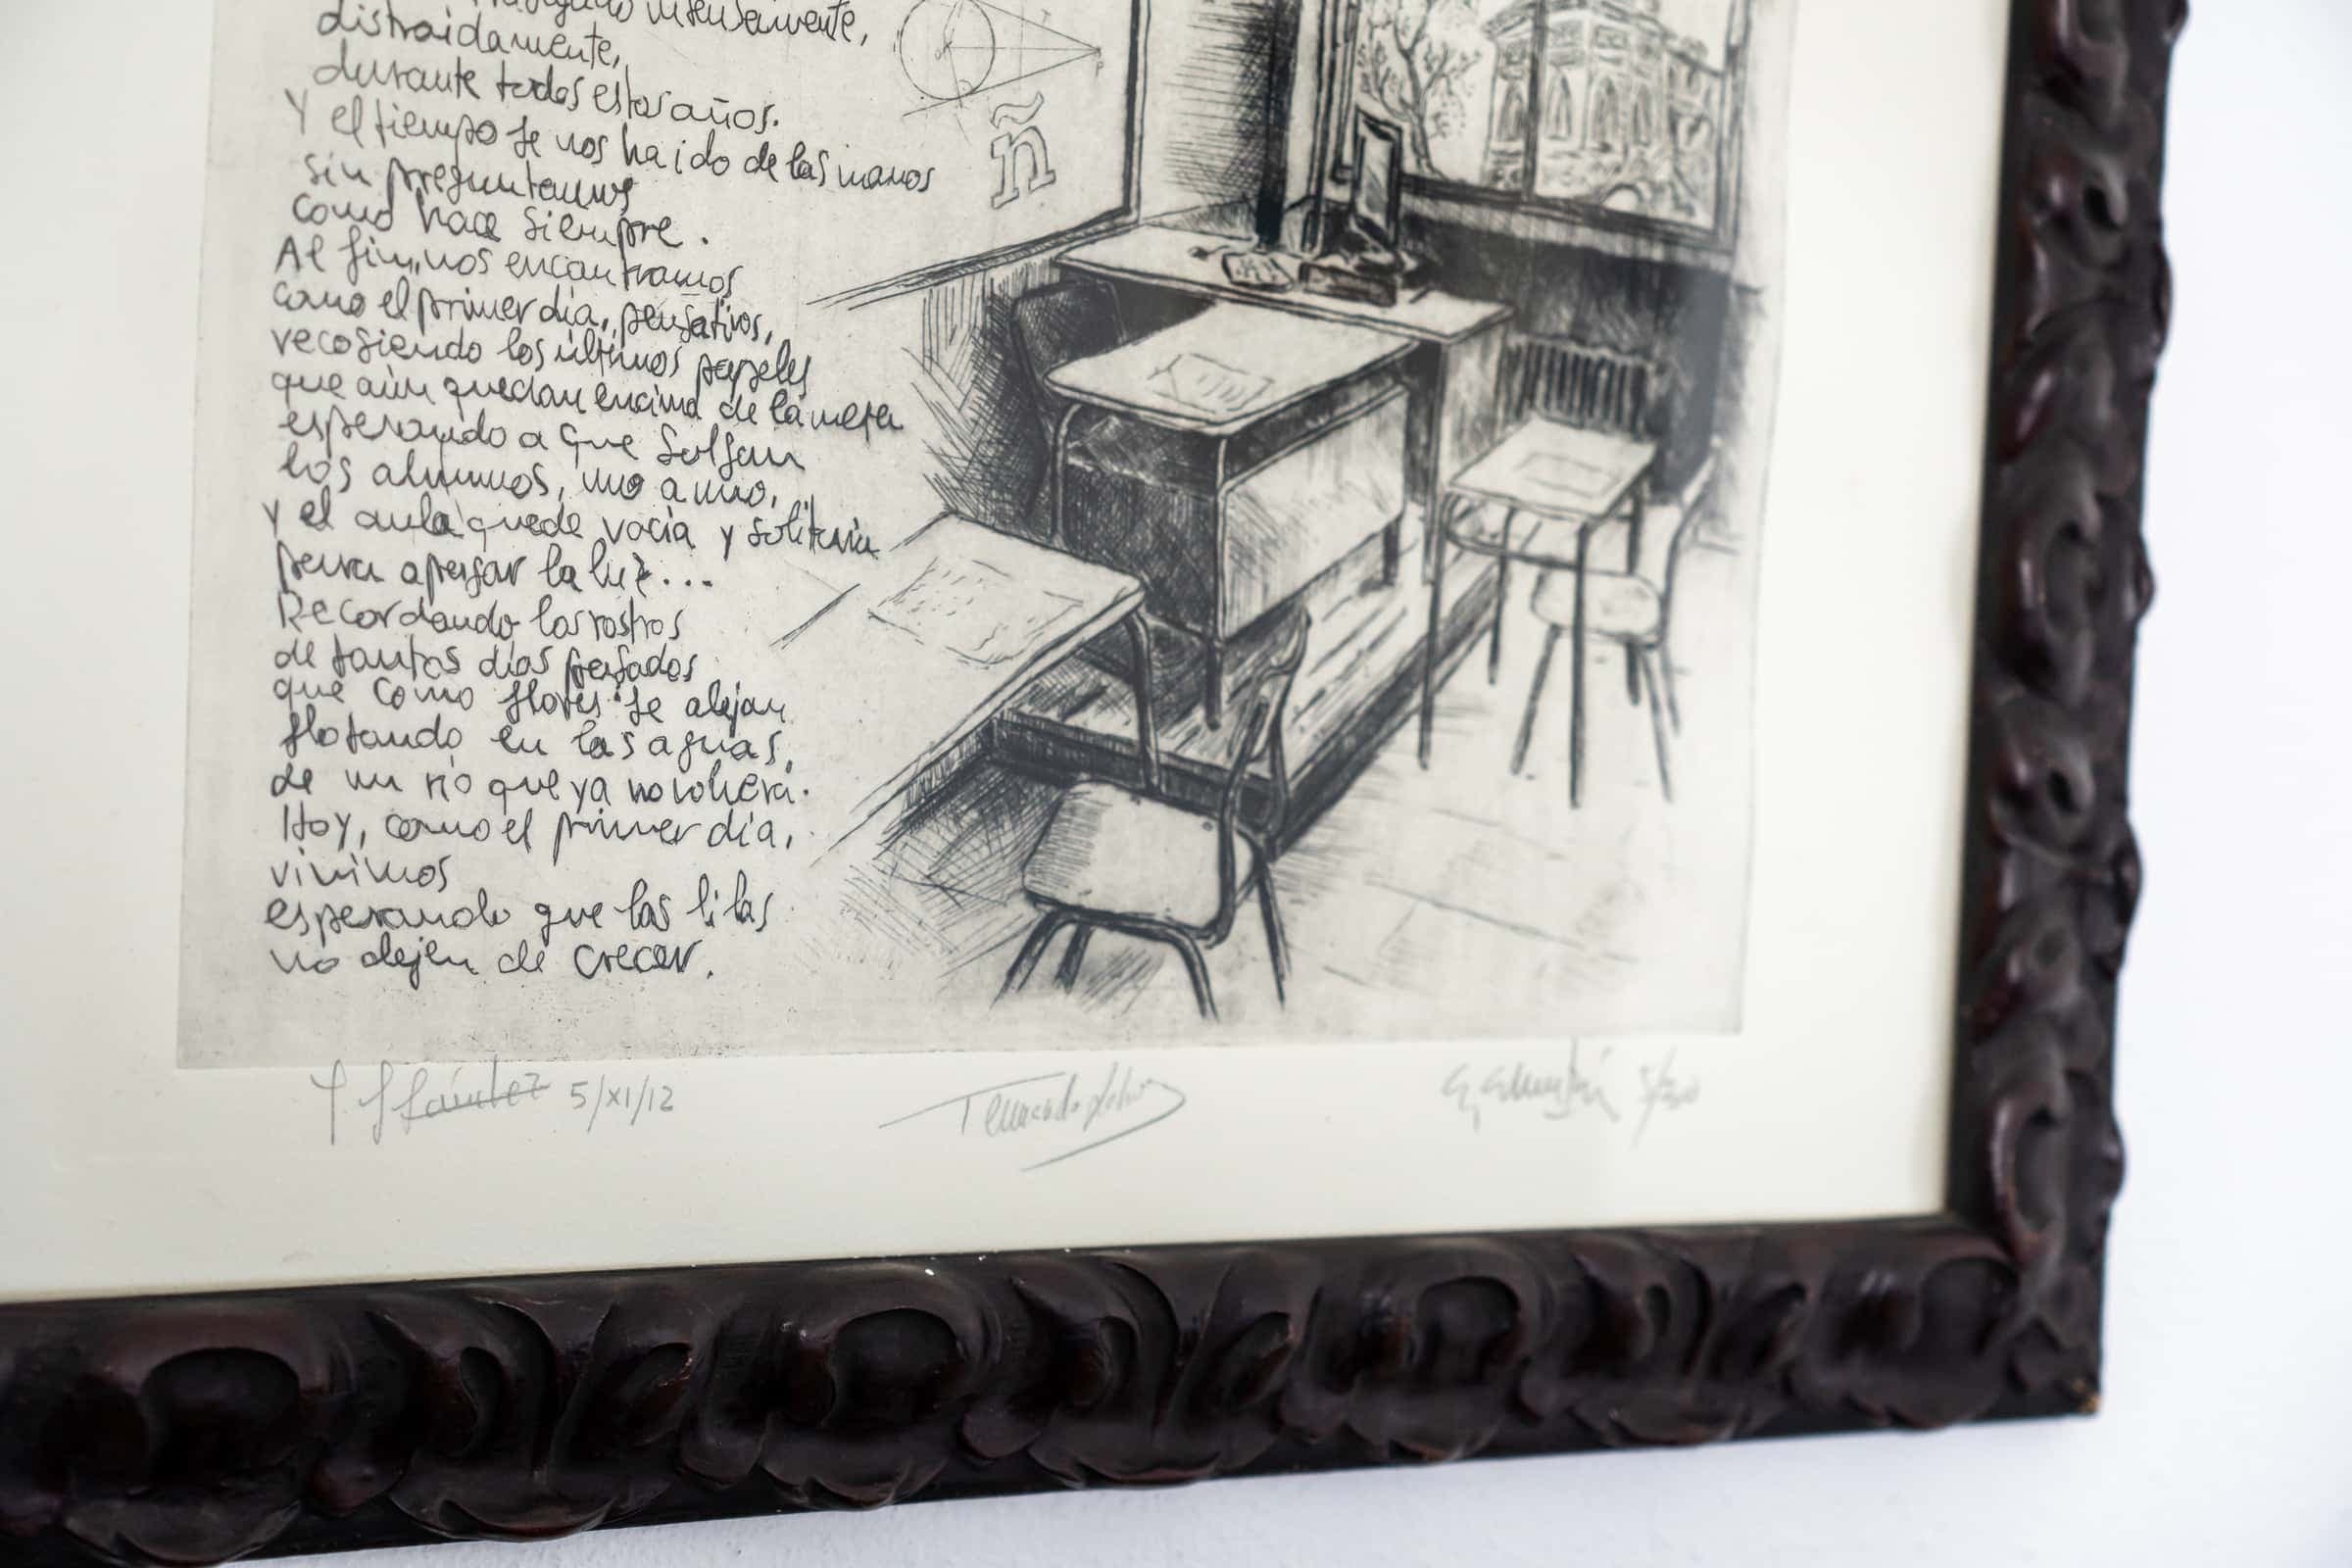 intensamente,
distraidamente,
durante todos estos años.
Y el tiempo se nos ha ido de las manos
sin preguntarnos
como hace siempre.
Al fin, nos encontramos
como el primer día, pensativos,
recogiendo los últimos papeles
que aún quedan encima de la mesa
esperando a que salgan
los alumnos, uno a uno,
y el aula quede vacía y solitaria
para apagar la luz...
Recordando los rostros
de tantos días pasados
que como flores se alejan
flotando en las aguas,
de un río que ya no volverá.
Hoy, como el primer día,
vivimos
esperando que las lilas
no dejen de crecer.
ñ
5/XI/12